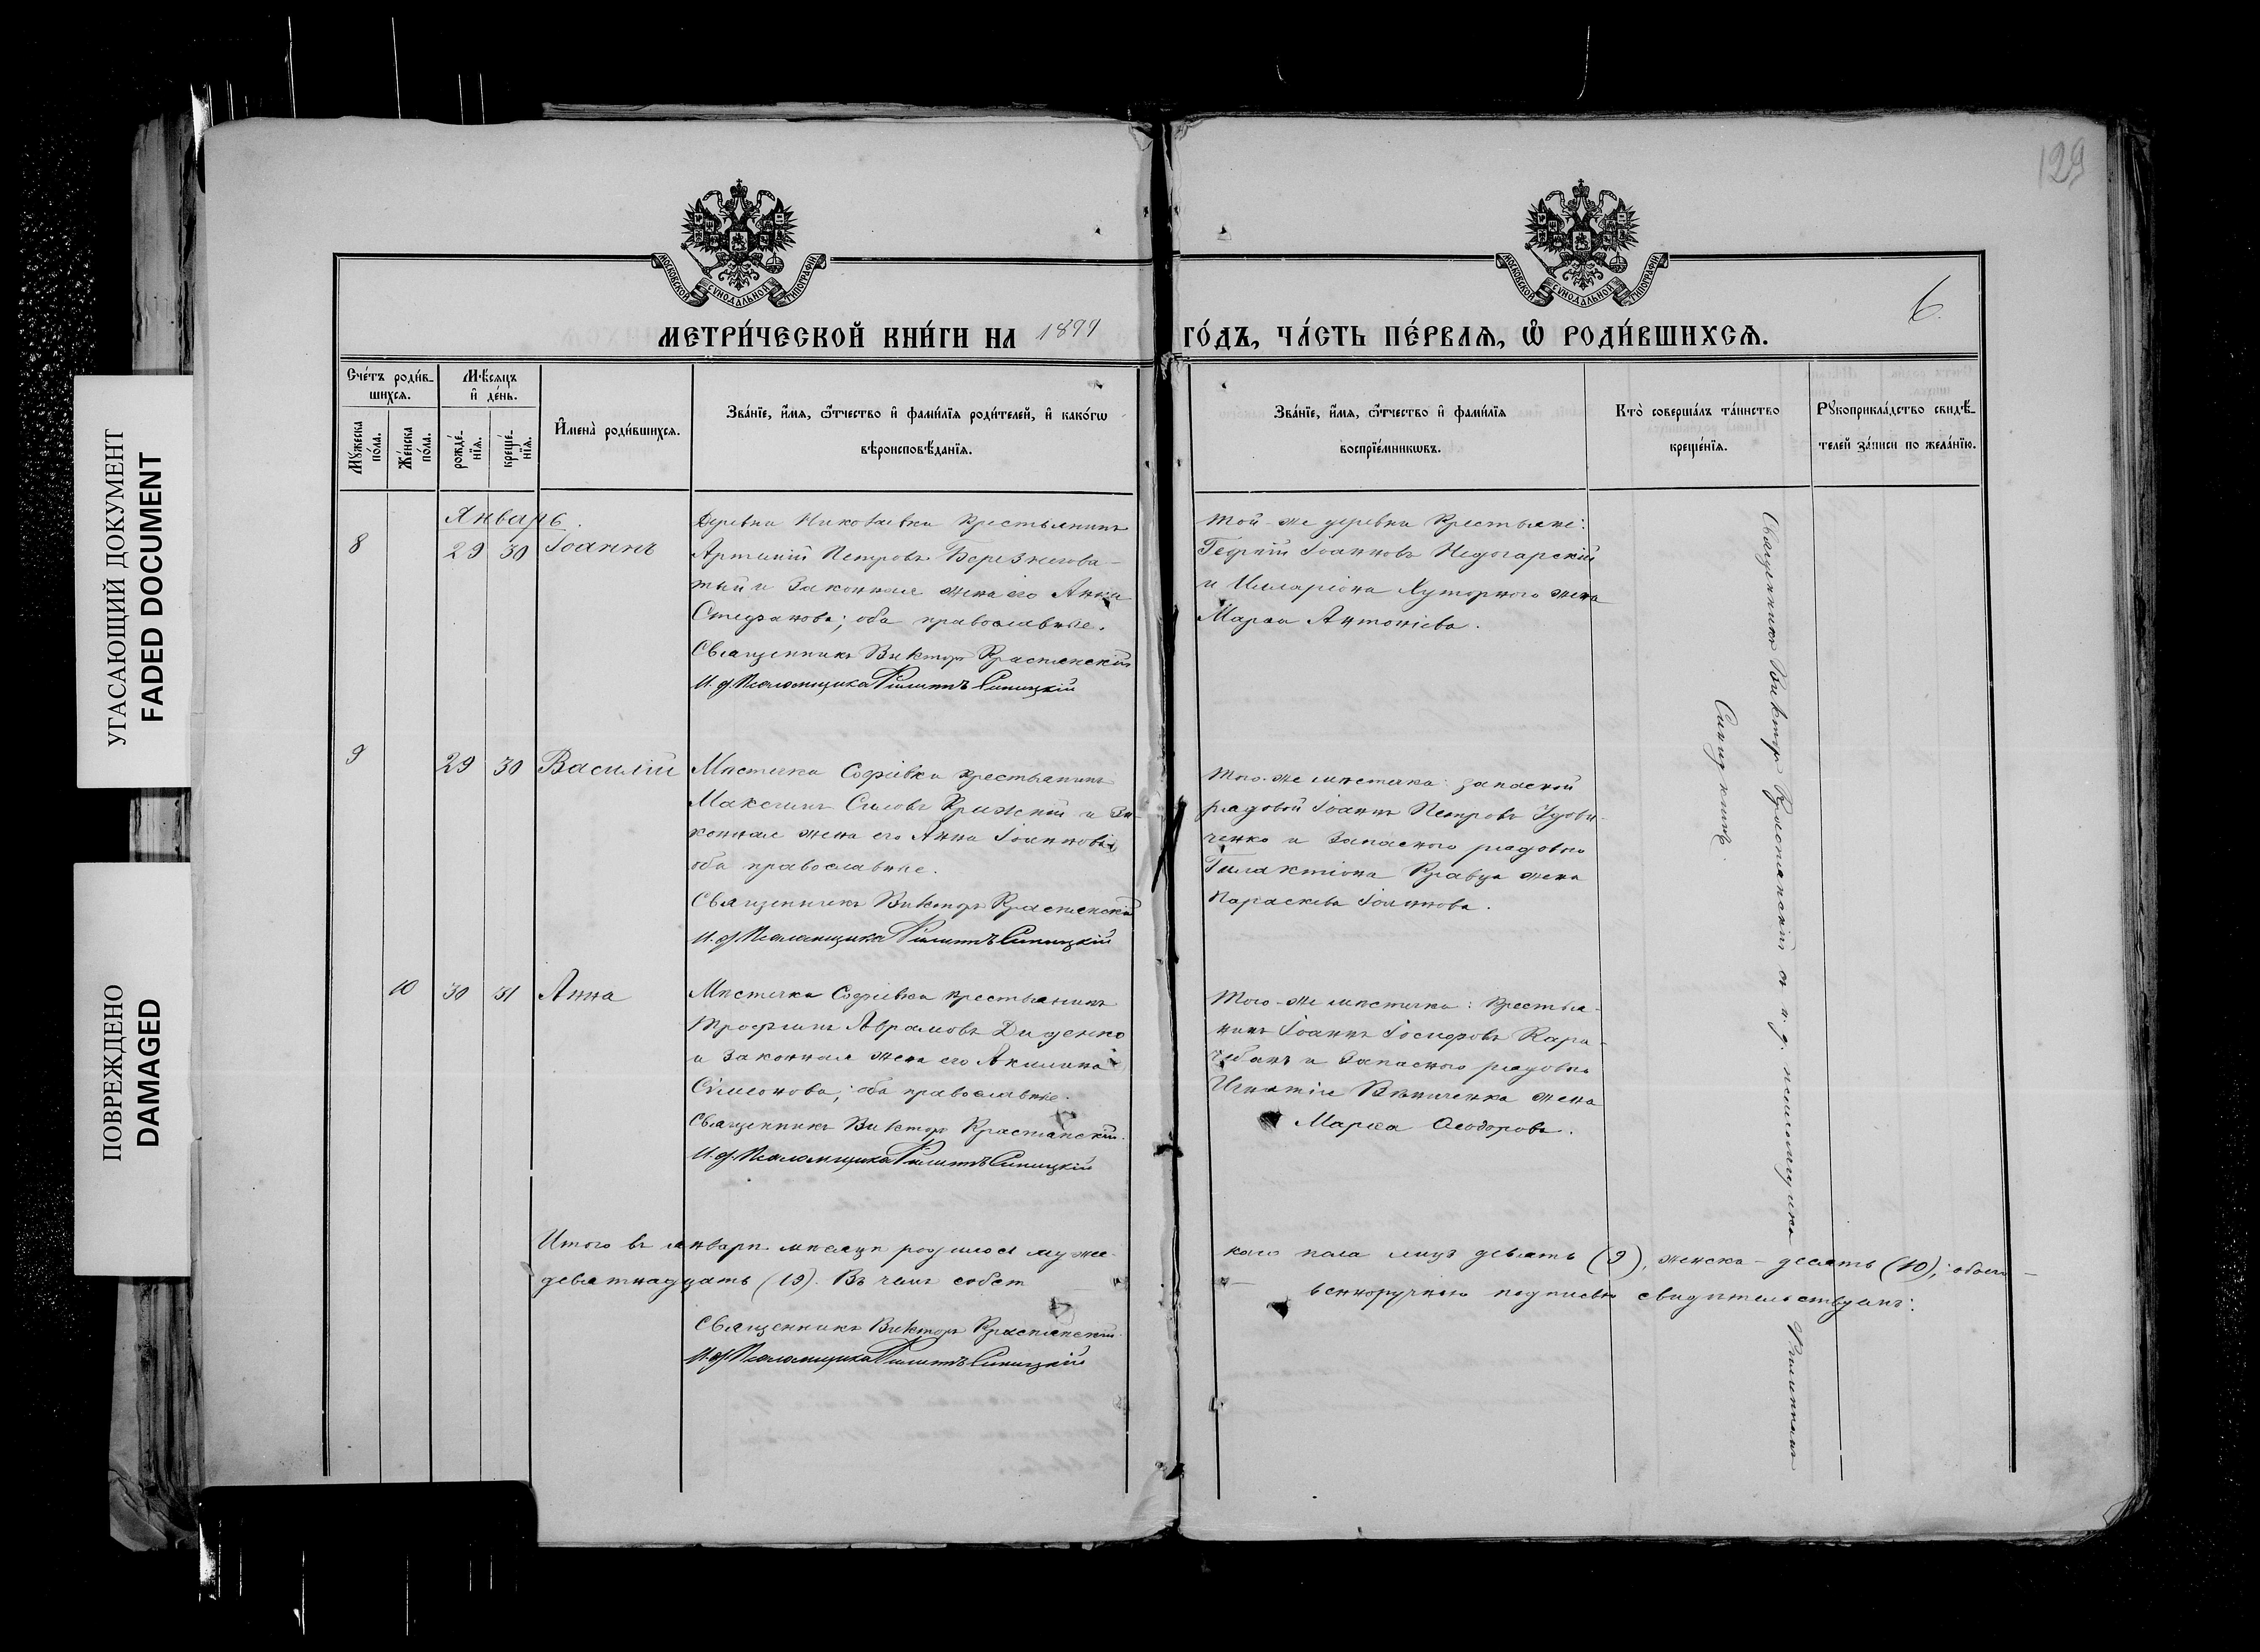 УГАСАЮЩИЙ ДОКУМЕНТ
FADED DOCUMENT
ПОВРЕЖДЕНО
DAMAGED
129
6
МОСКОВСКОЙ СУНОДАЛЬНОЙ ТИПОГРАФІИ
МОСКОВСКОЙ СУНОДАЛЬНОЙ ТИПОГРАФІИ
МЕТРИ́ЧЕСКОЙ КНИ́ГИ НА 1899 ГО́ДЪ, ЧА́СТЬ ПЕ́РВАѦ, Ѽ РОДИ́ВШИХСѦ.
Сче́тъ роди́в-
шихсѧ.
Мꙋ́жеска по́ла.
Же́нска по́ла.
Мѣ́сѧцъ
и҆ де́нь.
рожде́-
нїѧ.
креще́-
нїѧ.
И҆мена̀ роди́вшихсѧ.
Зва́нїе, и҆́мѧ, ѻ҆́тчество и҆ фами́лїѧ роди́телей, и҆ како́гѡ
вѣроисповѣ́данїѧ.
Зва́нїе, и҆́мѧ, ѻ҆́тчество и҆ фами́лїѧ
воспрїе́мникѡвъ.
Кто̀ соверша́лъ та́инство
креще́нїѧ.
Рꙋкоприкла́дство свидѣ́-
телей за́писи по жела́нїю.
Январь.
8 29 30 Іоаннъ
Деревни Николаевки крестьянинъ
Артемій Петровъ Березнегова-
тый и законная жена его Анна
Стефанова; оба православные.
Священникъ Викторъ Крастелевскій
И. д. Псаломщика Филиппъ Синицкій
Той-же деревни крестьяне:
Георгій Іоанновъ Недогарскій
и Илларіона Хуторного жена
Марѳа Антоніева.
9 29 30 Василій
Мѣстечка Софіевки крестьянинъ
Максимъ Силовъ Крижній и за-
конная жена его Анна Іоаннова;
оба православные.
Священникъ Викторъ
И. д. Псаломщика Филиппъ Синицкій
Того-же мѣстечка: запасной
рядовой Іоаннъ Петровъ Удови-
ченко и запасного рядового
Галактіона Кравца жена
Параскева Іоаннова.
10 30 31 Анна
Мѣстечка Софіевки крестьянинъ
Трофимъ Аврамовъ Диденко
и законная жена его Акилина
Сѵмеонова; оба православные.
Священникъ Викторъ
И. д. Псаломщика Филиппъ Синицкій
Того-же мѣстечка: крестья-
нинъ Іоаннъ Іосифовъ Кара-
чебанъ и запасного рядового
Игнатія жена
Марѳа Ѳеодорова.
Священникъ Викторъ и и. д. псаломщика Филиппъ
Синицкій.
Итого въ январѣ мѣсяцѣ родилося муже- кого пола лицъ девять (9), женска - десять (10); обоего -
девятнадцать (19). Въ чемъ собст- венноручною подписью свидѣтельствуемъ:
Священникъ Викторъ
И. д. Псаломщика Филиппъ Синицкій